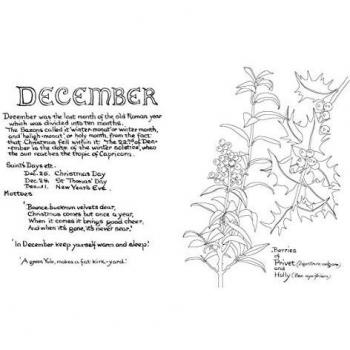 DECEMBER
December was the last month of the old Roman year
which was divided into ten months.
The Saxons called it 'winter-monat' or winter month,
and 'heligh-monat', or holy month, from the fact
that Christmas fell within it. The 22nd of Dec-
ember is the date of the winter solstice, when
the sun reaches the tropic of Capricorn.
Saint's Days etc.
Dec. 25. Christmas Day
Dec. St Thomas' Day
Dec. 31. New Years Eve.
Mottoes
'Bounce buckram velvets dear,
Christmas comes but once a year,
When it comes it brings good cheer,
And when it's gone, it's never near.'
'In December keep yourself warm and sleep!'
'A green Yule, makes a fat kirk-yard.'
Berries
of
Privet (Ligustrum vulgare)
and
Holly (Ilex aquifolium)